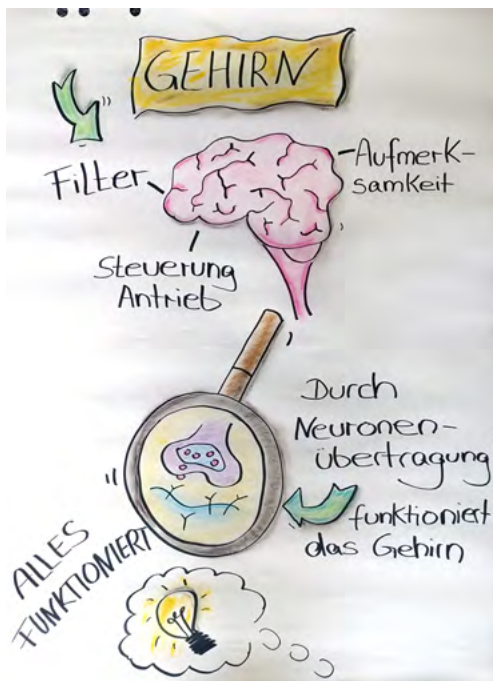 GEHIRN
Filter
Aufmerk-
samkeit
Steuerung
Antrieb
Durch
Neuronen-
übertragung
funktioniert
das Gehirn
ALLES
FUNKTIONIERT